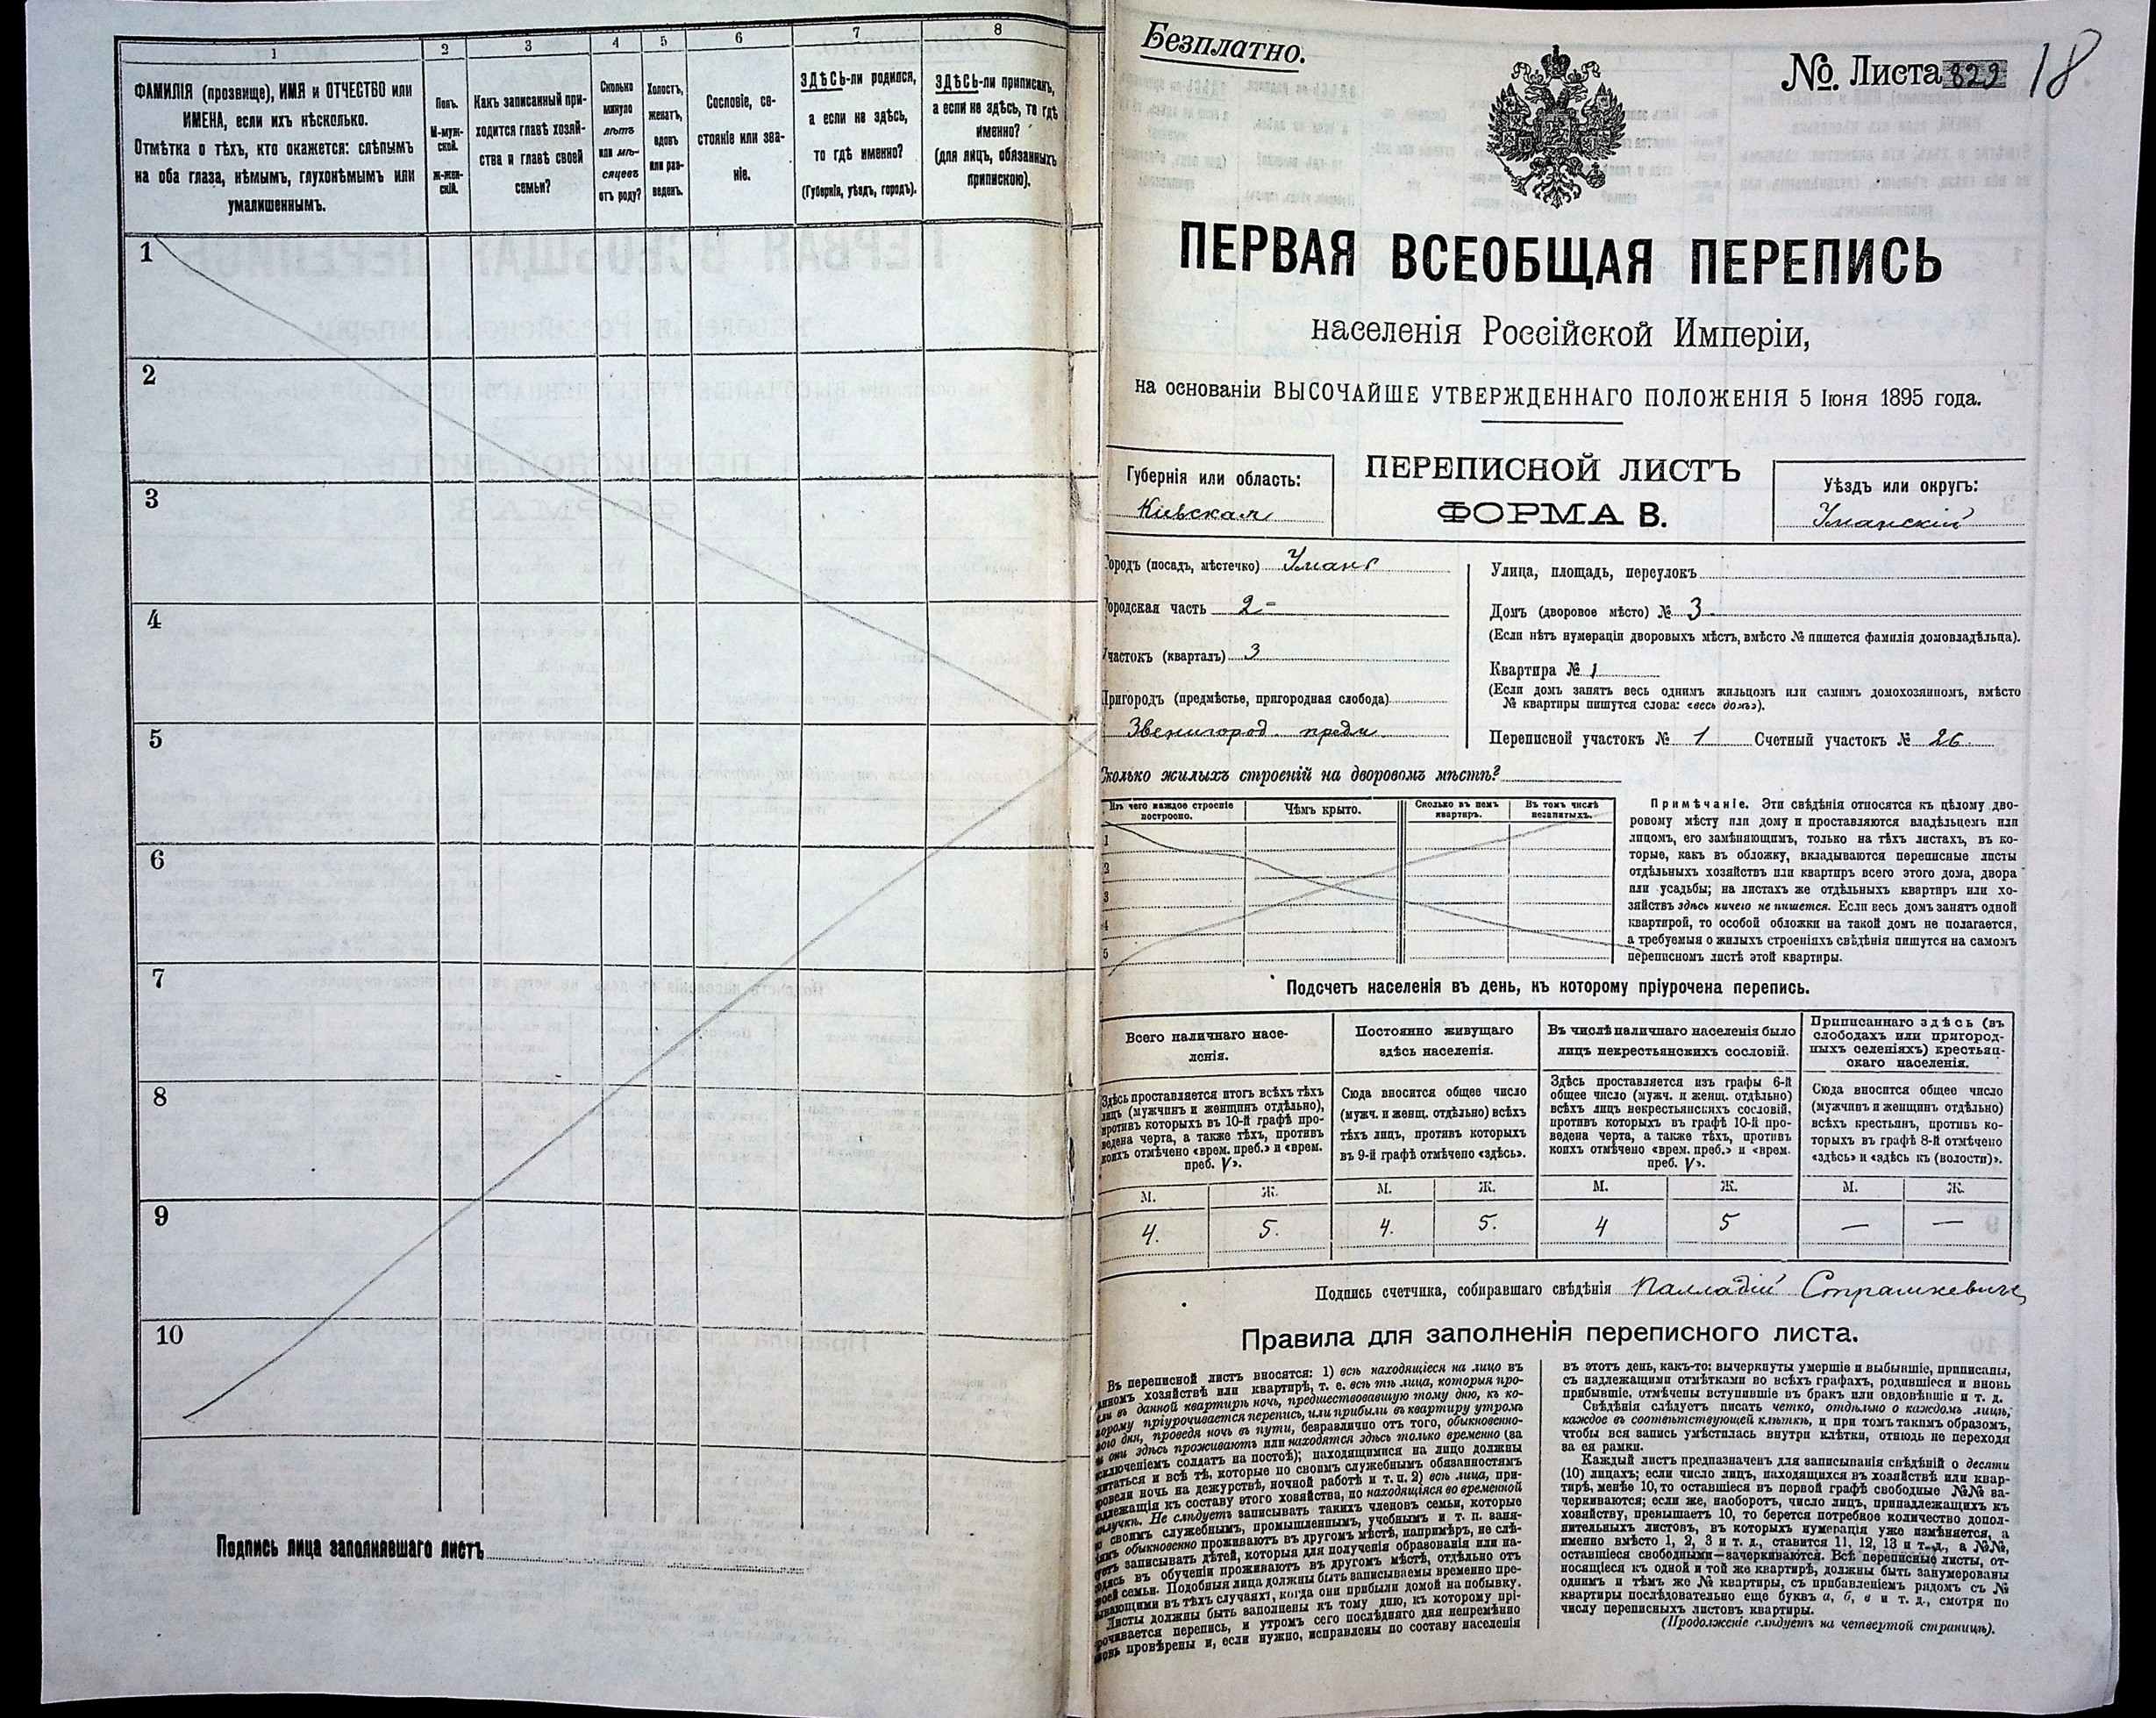 1
2
3
4
5
6
7
8
ФАМИЛІЯ (прозвище), ИМЯ и ОТЧЕСТВО или
ИМЕНА, если ихъ нѣсколько.
Отмѣтка о тѣхъ, кто окажется: слѣпымъ
на оба глаза, нѣмымъ, глухонѣмымъ или
умалишеннымъ.
Полъ.
М-муж-
ской.
Ж-жен-
скій.
Какъ записанный при-
ходится главѣ хозяй-
ства и главѣ своей
семьи?
Сколько
минуло
лѣтъ
или мѣ-
сяцевъ
отъ роду?
Холостъ,
женатъ,
вдовъ
или раз-
веденъ.
Сословіе, со-
стояніе или зва-
ніе.
ЗДѢСЬ-ли родился,
а если не здѣсь,
то гдѣ именно?
(Губернія, уѣздъ, городъ).
ЗДѢСЬ-ли приписанъ,
а если не здѣсь, то гдѣ
именно?
(для лицъ, обязанныхъ
припискою).
1
2
3
4
5
6
7
8
9
10
Подпись лица заполнявшаго листъ
Безплатно.
№ Листа 829
18
ПЕРВАЯ ВСЕОБЩАЯ ПЕРЕПИСЬ
населенія Россійской Имперіи,
на основаніи ВЫСОЧАЙШЕ УТВЕРЖДЕННАГО ПОЛОЖЕНІЯ 5 Іюня 1895 года.
Губернія или область:
Кіевская
ПЕРЕПИСНОЙ ЛИСТЪ
ФОРМА В.
Уѣздъ или округъ:
Уманскій
Городъ (посадъ, мѣстечко) Умань
Городская часть 2-
Участокъ (кварталъ) 3
Пригородъ (предмѣстье, пригородная слобода)
Звенигород. предм.
Улица, площадь, переулокъ
Домъ (дворовое мѣсто) № 3.
(Если нѣтъ нумераціи дворовыхъ мѣстъ, вмѣсто № пишется фамилія домовладѣльца).
Квартира № 1
(Если домъ занятъ весь однимъ жильцомъ или самимъ домохозяиномъ, вмѣсто
№ квартиры пишутся слова: «весь домъ»).
Переписной участокъ № 1 Счетный участокъ № 26.
Сколько жилыхъ строеній на дворовомъ мѣстѣ?
Изъ чего каждое строеніе
построено.
Чѣмъ крыто.
Сколько въ немъ
квартиръ.
Въ томъ числѣ
незанятыхъ.
1
2
3
4
5
Примѣчаніе. Эти свѣдѣнія относятся къ цѣлому дво-
ровому мѣсту или дому и проставляются владѣльцемъ или
лицомъ, его замѣняющимъ, только на тѣхъ листахъ, въ ко-
торые, какъ въ обложку, вкладываются переписные листы
отдѣльныхъ хозяйствъ или квартиръ всего этого дома, двора
или усадьбы; на листахъ же отдѣльныхъ квартиръ или хо-
зяйствъ здѣсь ничего не пишется. Если весь домъ занятъ одной
квартирой, то особой обложки на такой домъ не полагается,
а требуемыя о жилыхъ строеніяхъ свѣдѣнія пишутся на самомъ
переписномъ листѣ этой квартиры.
Подсчетъ населенія въ день, къ которому пріурочена перепись.
Всего наличнаго насе-
ленія.
Постоянно живущаго
здѣсь населенія.
Въ числѣ наличнаго населенія было
лицъ некрестьянскихъ сословій.
Приписаннаго здѣсь (въ
слободахъ или пригород-
ныхъ селеніяхъ) крестьян-
скаго населенія.
Здѣсь проставляется итогъ всѣхъ тѣхъ
лицъ (мужчинъ и женщинъ отдѣльно),
противъ которыхъ въ 10-й графѣ про-
ведена черта, а также тѣхъ, противъ
коихъ отмѣчено «врем. преб.» и «врем.
преб. V».
Сюда вносится общее число
(мужч. и женщ. отдѣльно) всѣхъ
тѣхъ лицъ, противъ которыхъ
въ 9-й графѣ отмѣчено «здѣсь».
Здѣсь проставляется изъ графы 6-й
общее число (мужч. и женщ. отдѣльно)
всѣхъ лицъ некрестьянскихъ сословій,
противъ которыхъ въ графѣ 10-й про-
ведена черта, а также тѣхъ, противъ
коихъ отмѣчено «врем. преб.» и «врем.
преб. V».
Сюда вносится общее число
(мужчинъ и женщинъ отдѣльно)
всѣхъ крестьянъ, противъ ко-
торыхъ въ графѣ 8-й отмѣчено
«здѣсь» и «здѣсь къ (волости)».
М. Ж. М. Ж. М. Ж. М. Ж.
4. 5. 4. 5. 4 5 — —
Подпись счетчика, собиравшаго свѣдѣнія Палладій Страшкевичъ
Правила для заполненія переписного листа.
Въ переписной листъ вносятся: 1) всѣ находящіеся на лицо въ
данномъ хозяйствѣ или квартирѣ, т. е. всѣ тѣ лица, которыя про-
вели въ данной квартирѣ ночь, предшествовавшую тому дню, къ ко-
торому пріурочивается перепись, или прибыли въ квартиру утромъ
того дня, проведя ночь въ пути, безразлично отъ того, обыкновенно-
ли они здѣсь проживаютъ или находятся здѣсь только временно (за
исключеніемъ солдатъ на постоѣ); находящимися на лицо должны
считаться и всѣ тѣ, которые по своимъ служебнымъ обязанностямъ
провели ночь на дежурствѣ, ночной работѣ и т. п. 2) всѣ лица, при-
надлежащія къ составу этого хозяйства, но находящіяся во временной
отлучкѣ. Не слѣдуетъ записывать такихъ членовъ семьи, которые
по своимъ служебнымъ, промышленнымъ, учебнымъ и т. п. заня-
тіямъ обыкновенно проживаютъ въ другомъ мѣстѣ, напримѣръ, не слѣ-
дуетъ записывать дѣтей, которыя для полученія образованія или на-
ходясь въ обученіи проживаютъ въ другомъ мѣстѣ, отдѣльно отъ
своей семьи. Подобныя лица должны быть записываемы временно пре-
бывающими въ тѣхъ случаяхъ, когда они прибыли домой на побывку.
Листы должны быть заполнены къ тому дню, къ которому прі-
урочивается перепись, и утромъ сего послѣдняго дня непремѣнно
вновь провѣрены и, если нужно, исправлены по составу населенія
въ этотъ день, какъ-то: вычеркнуты умершіе и выбывшіе, приписаны,
съ надлежащими отмѣтками во всѣхъ графахъ, родившіеся и вновь
прибывшіе, отмѣчены вступившіе въ бракъ или овдовѣвшіе и т. д.
Свѣдѣнія слѣдуетъ писать четко, отдѣльно о каждомъ лицѣ,
каждое въ соотвѣтствующей клѣткѣ, и при томъ такимъ образомъ,
чтобы вся запись умѣстилась внутри клѣтки, отнюдь не переходя
за ея рамки.
Каждый листъ предназначенъ для записыванія свѣдѣній о десяти
(10) лицахъ; если число лицъ, находящихся въ хозяйствѣ или квар-
тирѣ, менѣе 10, то оставшіеся въ первой графѣ свободные №№ за-
черкиваются; если же, наоборотъ, число лицъ, принадлежащихъ къ
хозяйству, превышаетъ 10, то берется потребное количество допол-
нительныхъ листовъ, въ которыхъ нумерація уже измѣняется, а
именно вмѣсто 1, 2, 3 и т. д., ставится 11, 12, 13 и т. д., а №№,
оставшіеся свободными—зачеркиваются. Всѣ переписные листы, от-
носящіеся къ одной и той же квартирѣ, должны быть занумерованы
однимъ и тѣмъ же № квартиры, съ прибавленіемъ рядомъ съ №
квартиры послѣдовательно еще буквъ а, б, в и т. д., смотря по
числу переписныхъ листовъ квартиры.
(Продолженіе слѣдуетъ на четвертой страницѣ).